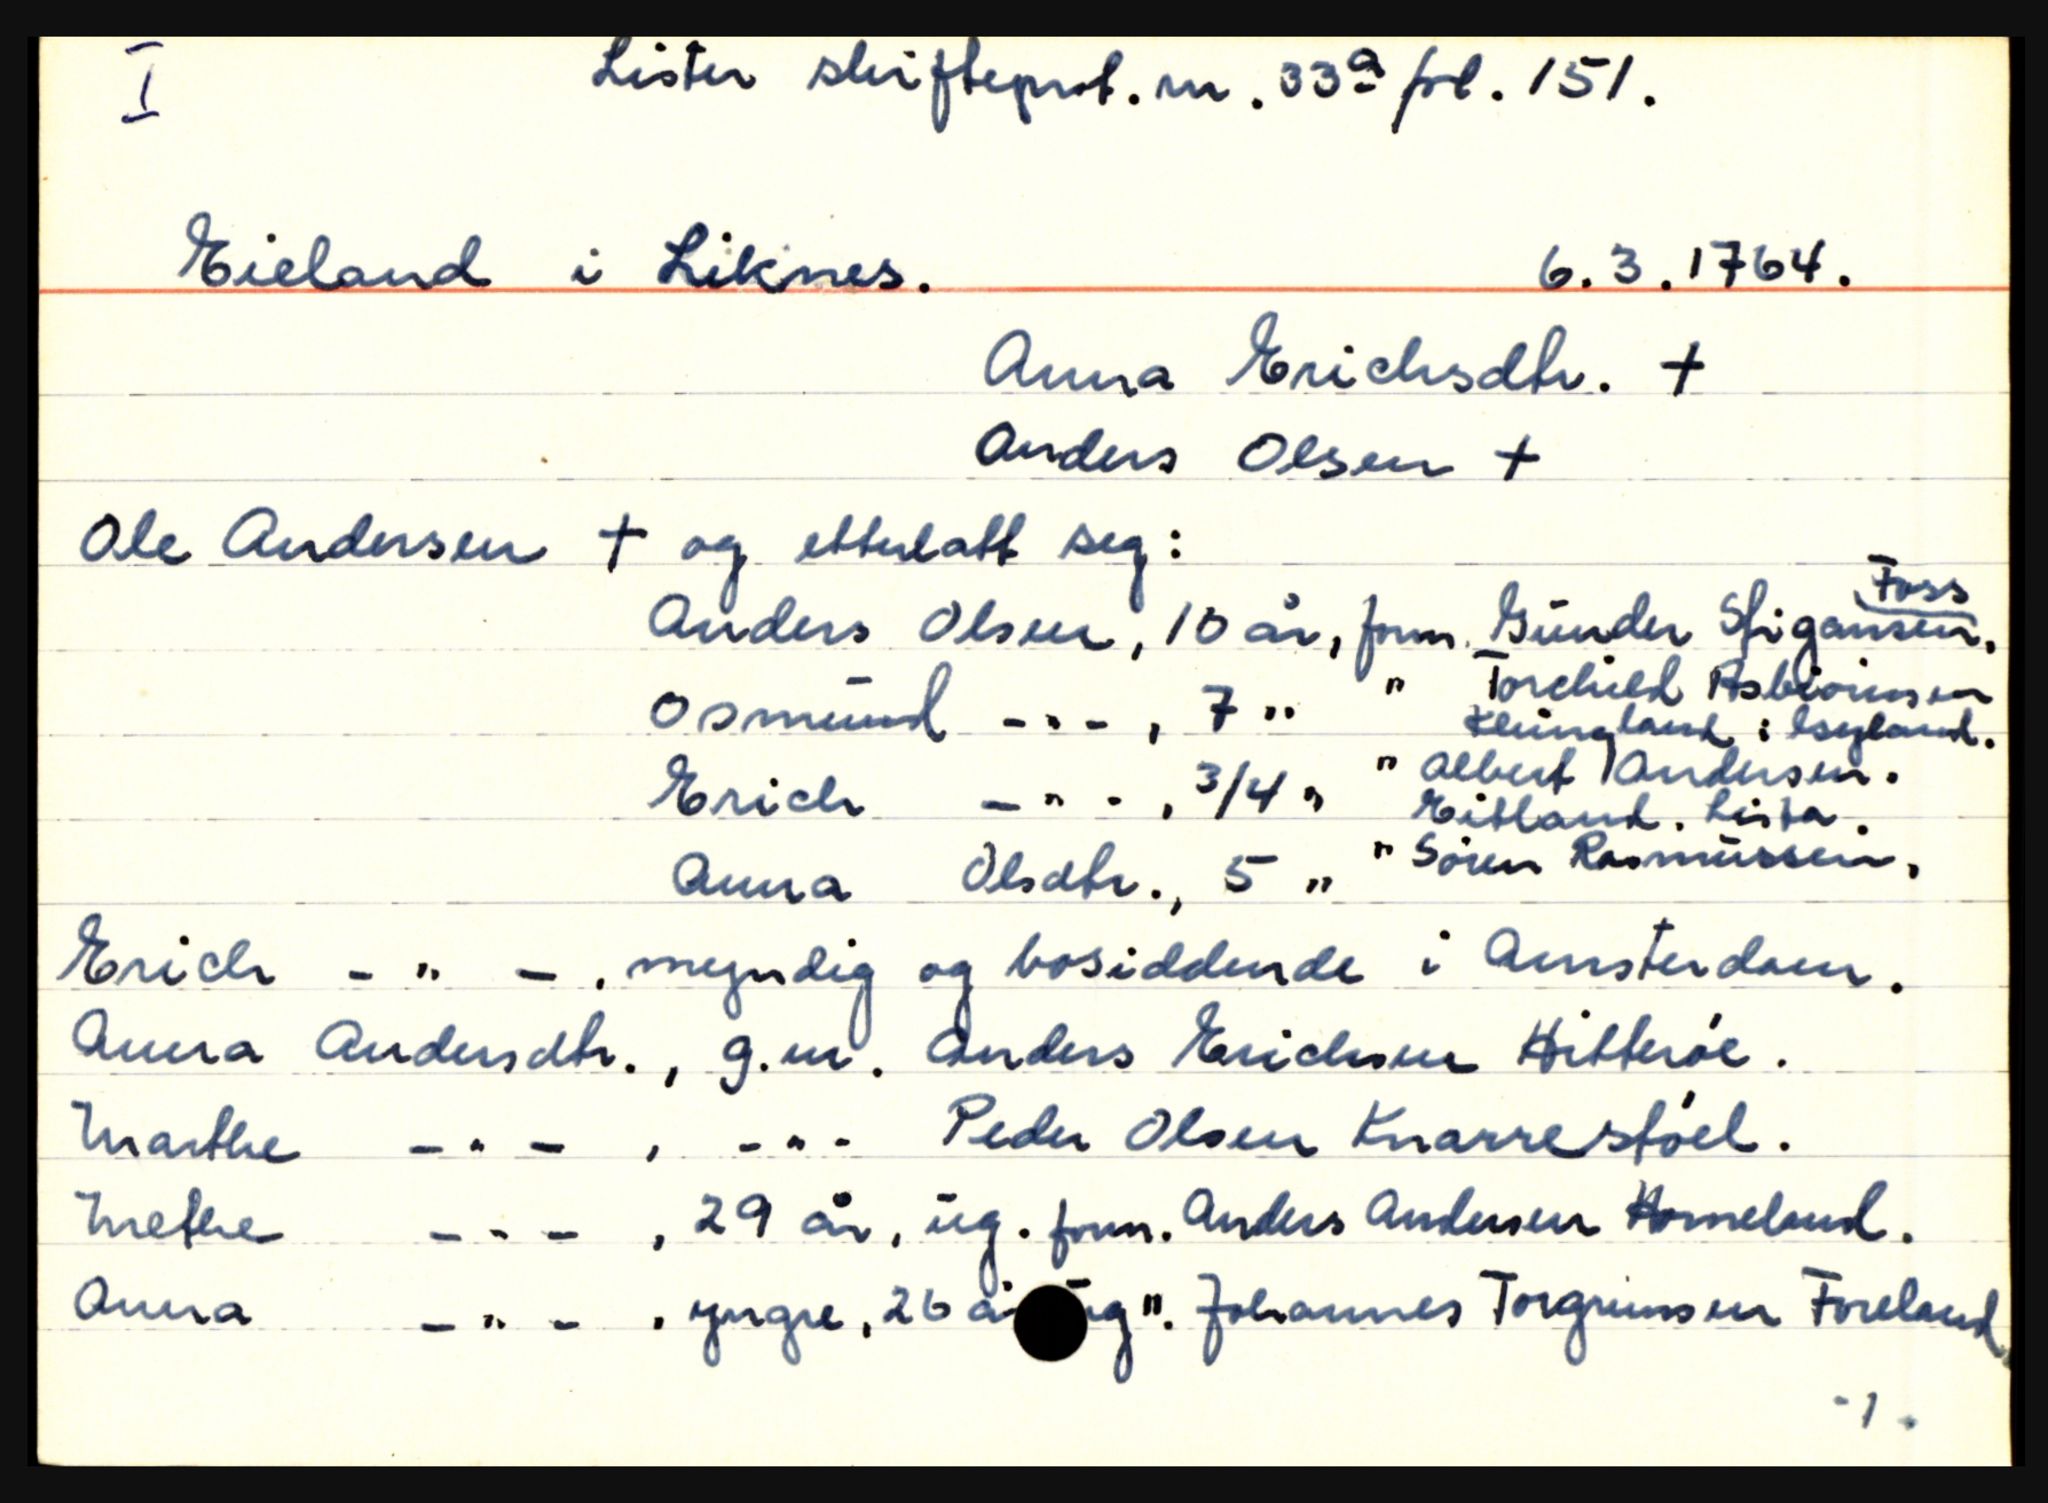 I
Lister skifteprot. nr. 33a fol. 151.
Eieland i Liknes. 6.3.1764.
Anna Erichsdtr. †
Anders Olsen †
Ole Andersen † og etterlatt seg:
Anders Olsen, 10 år, form. Gunder Sfigansen, Foss
Osmund -"-, 7 " " Torchild Asbiörnsen
Klungland i Egeland.
Erich -"-, 3/4 " " Albert Andersen.
Eitland. Lista.
Anna Olsdtr., 5 " " Sören Rasmussen,
Erich -"-, myndig og bosiddende i Amsterdam.
Anna Andersdtr., g.m. Anders Erichsen Hitteröe.
Marthe -"-, -"- Peder Olsen Knarrestöel.
Methe -"-, 29 år, ug. form. Anders Andersen Homeland.
Anna -"-, yngre, 26 år ug ". Johannes Torgrimsen Foreland
-1.